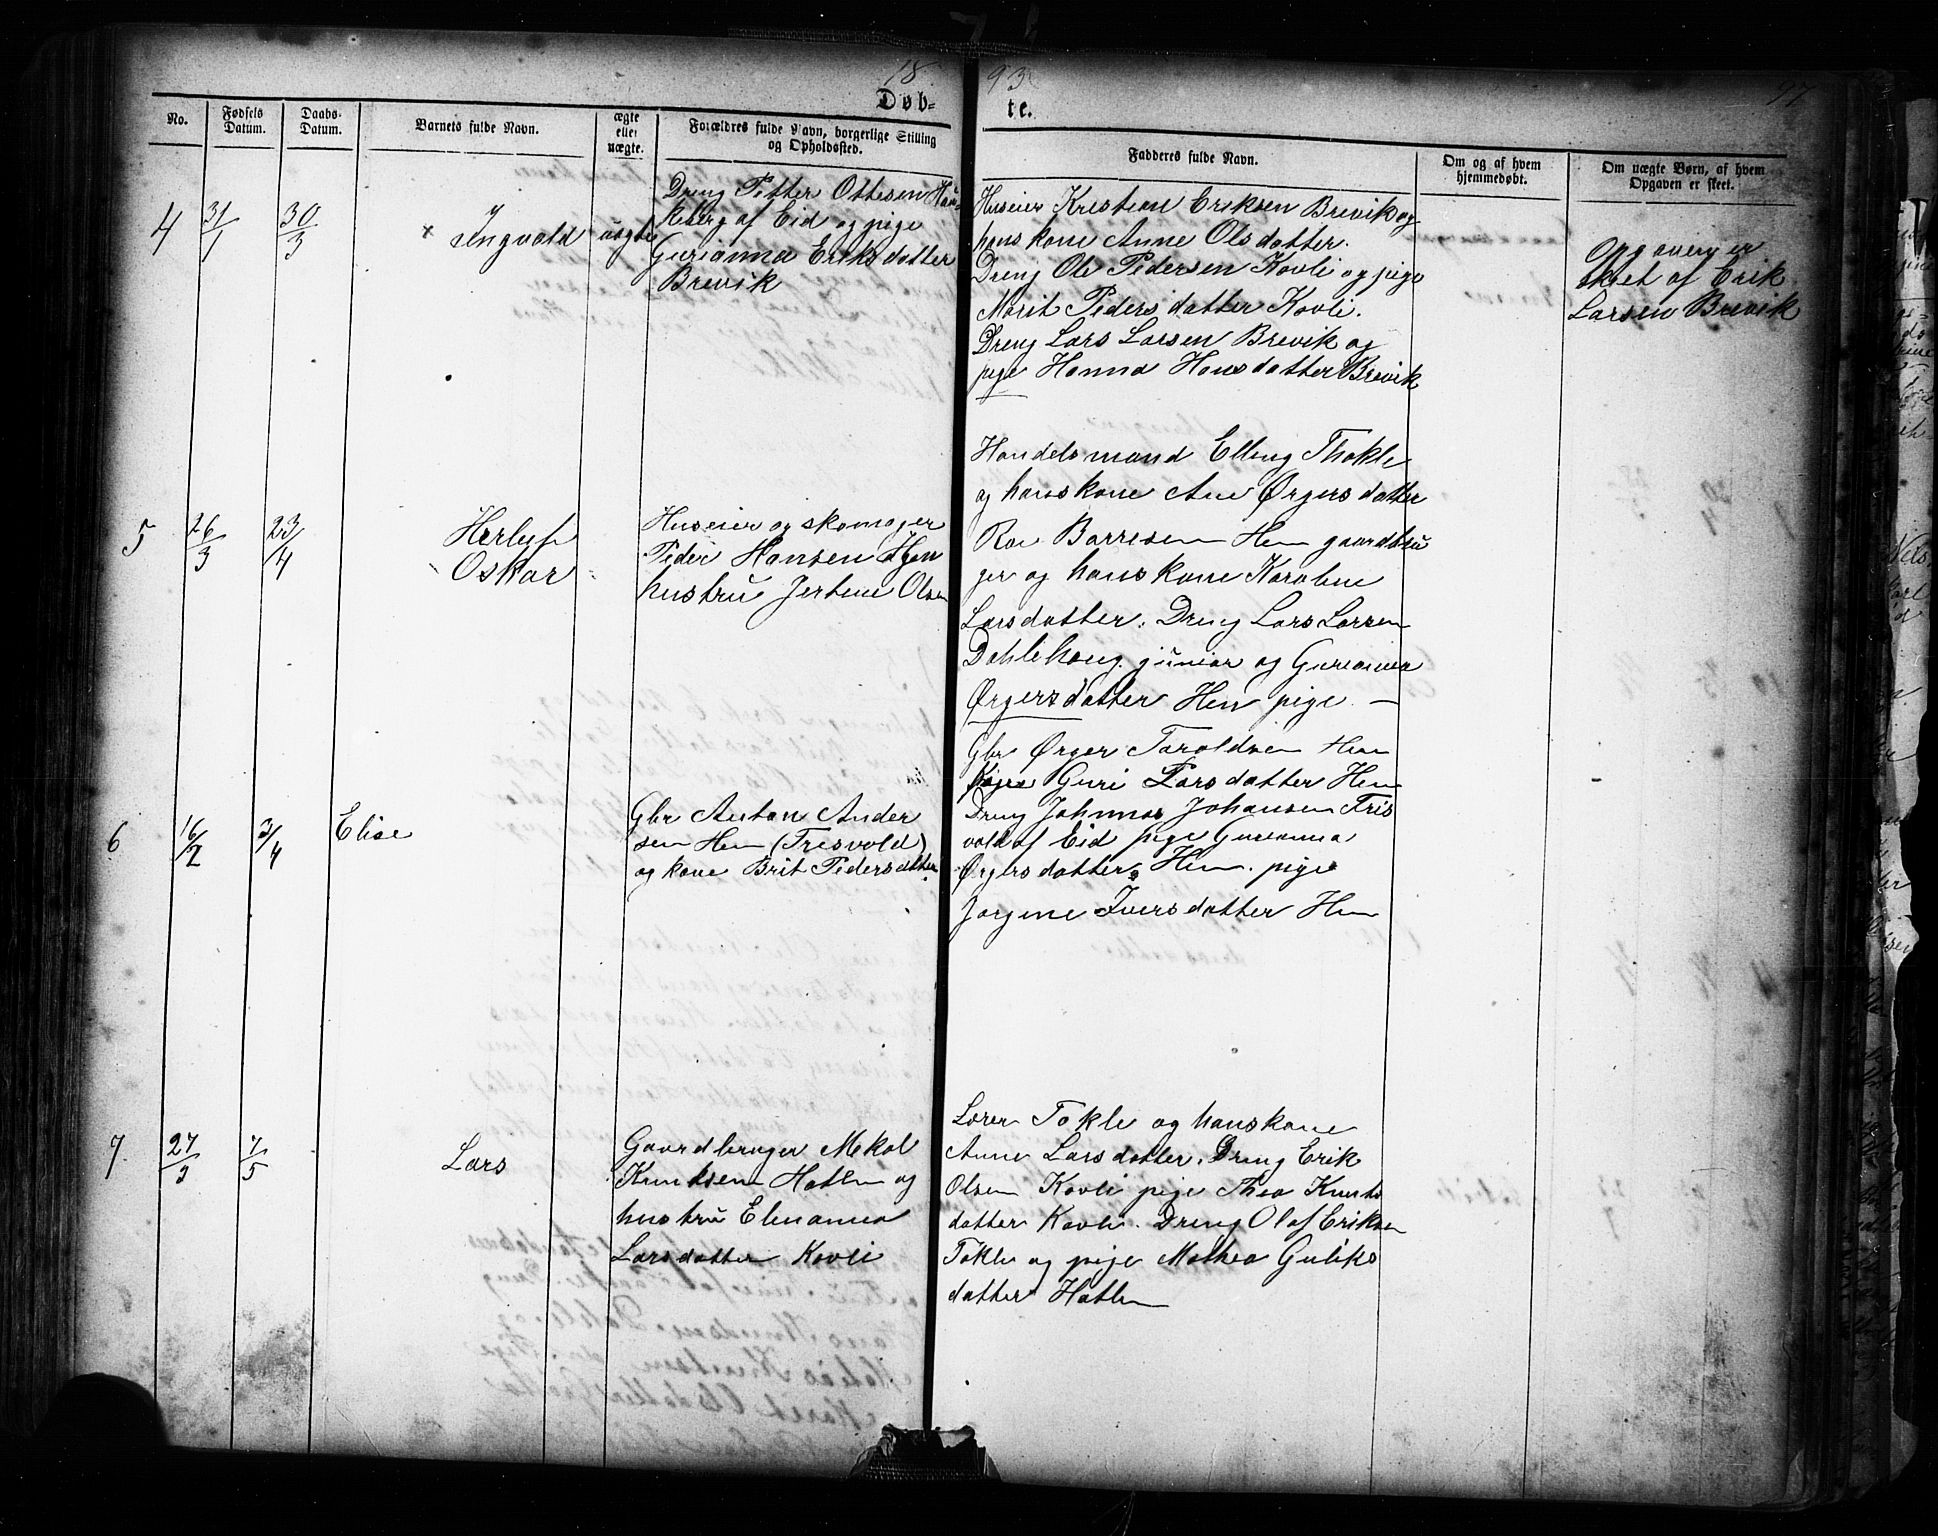 1893
97
Døb-te.
No.
Fødsels Datum.
Daabs-Datum.
Barnets fulde Navn.
ægte eller uægte.
Forældres fulde Navn, borgerlige Stilling og Opholdssted.
Fadderes fulde Navn.
Om og af hvem hjemmedøbt.
Om uægte Børn, af hvem Opgaven er skeet.
4
31/1
30/3
× Ingvald
uægte
Dreng Petter Ottesen Hau-
keberg af Eid og pige
Gurianna Eriksdatter
Brevik
Huseier Kristian Eriksen Brevik og
hans kone Anne Olsdatter.
Dreng Ole Pedersen Kovli og pige
Marit Pedersdatter Kovli.
Dreng Lars Larsen Brevik og
pige Hanna Hansdatter Brevik
Opgaven er
skeet af Erik
Larsen Brevik
5
26/3
23/4
Herluf
Oskar
Huseier og skomager
Peder Hansen Hen
hustru Jertine Olsen
Handelsmand Elling Thokle
og hans kone Ane Ørgersdatter
Roe Barresen Hen gaardbru
ger og hans kone Karoline
Larsdatter. Dreng Lars Larsen
Dahlehaug junior og Gurianna
Ørgersdatter Hen pige —
6
16/2
3/4
Elise
Gbr Anton Ander
sen Hen (Frisvold)
og kone Brit Pedersdatter.
Gbr Ørger Taroldsen Hen
Guri Larsdatter Hen
Dreng Johnnas Johansen Fris
vold af Eid pige Gurianna
Ørgersdatter Hen. pige
Jørgine Iversdatter Hen
7
27/3
7/5
Lars
Gaardbruger Mekal
Knutsen Hatlen og
hustru Elenanna
Larsdatter Kovli
Lærer Tokle og hans kone
Anne Larsdatter. Dreng Erik
Olsen Kovli pige Thea Knuts
datter Kovli. Dreng Olaf Eriksen
Tokle og pige Mathea Guliks
datter Hatlen